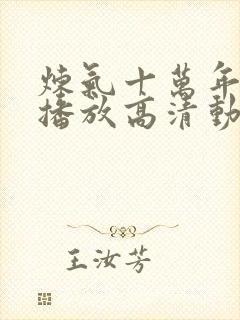 煉氣十萬年
播放高清動
王汝芳